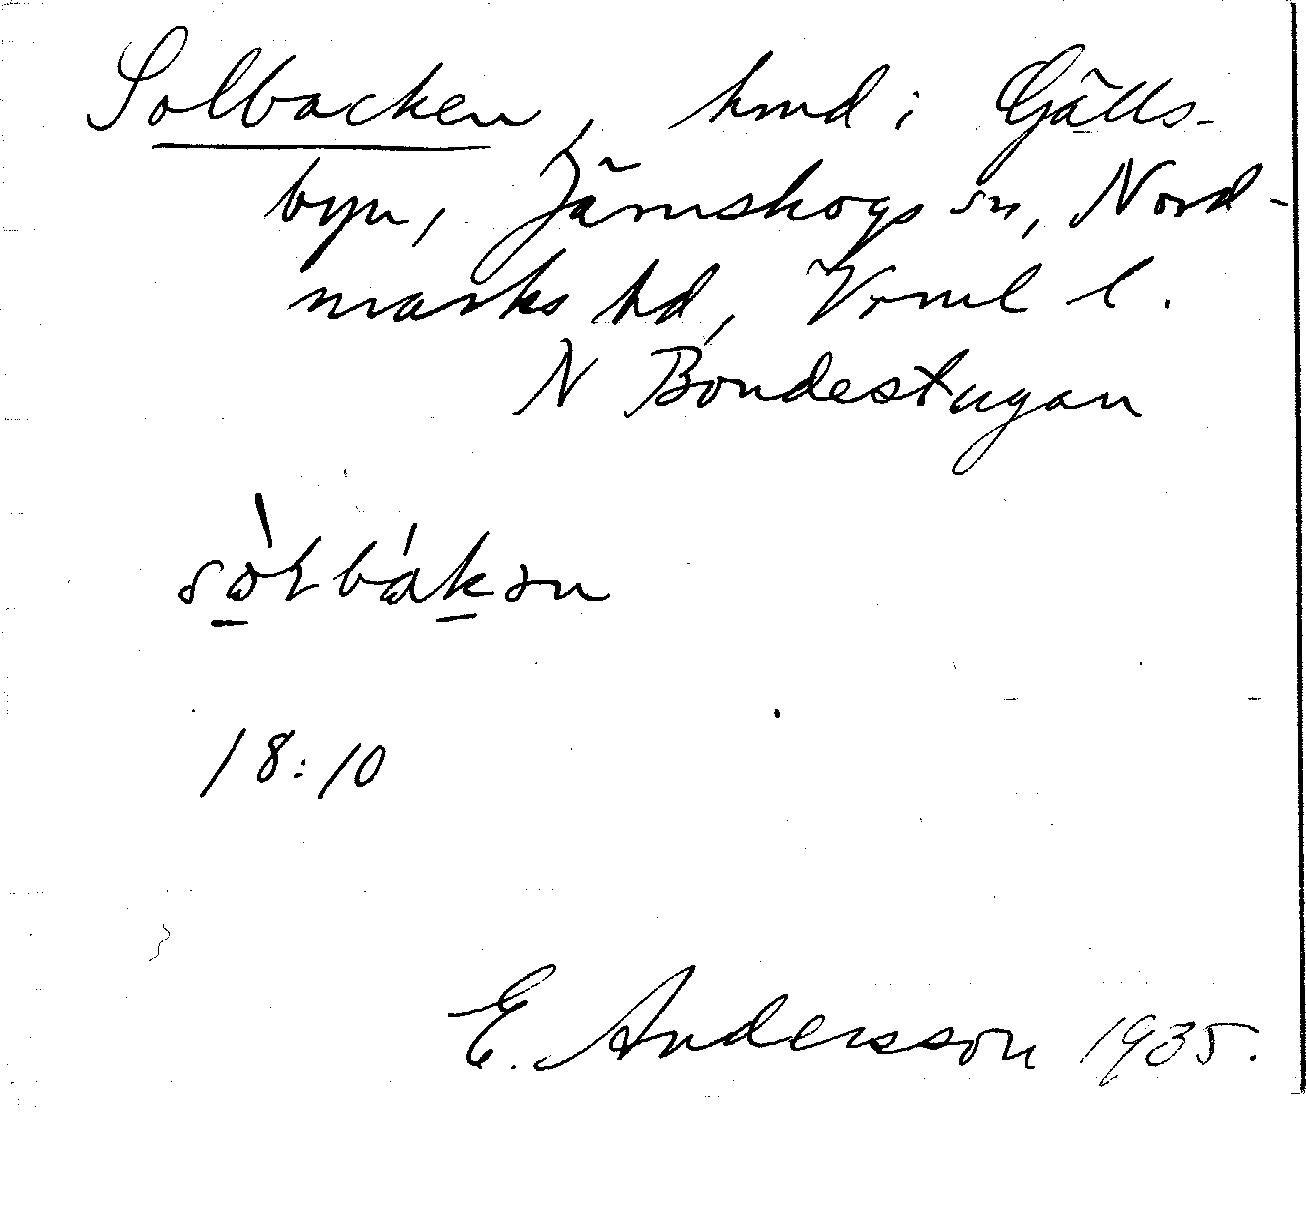 Solbacken, hmd i Gälls-
byn, Järnskogs sn, Nord-
marks hd, Vrml l.
N Bondestugan
sò̠ɫbák̠ən
18:10
E. Andersson 1935.